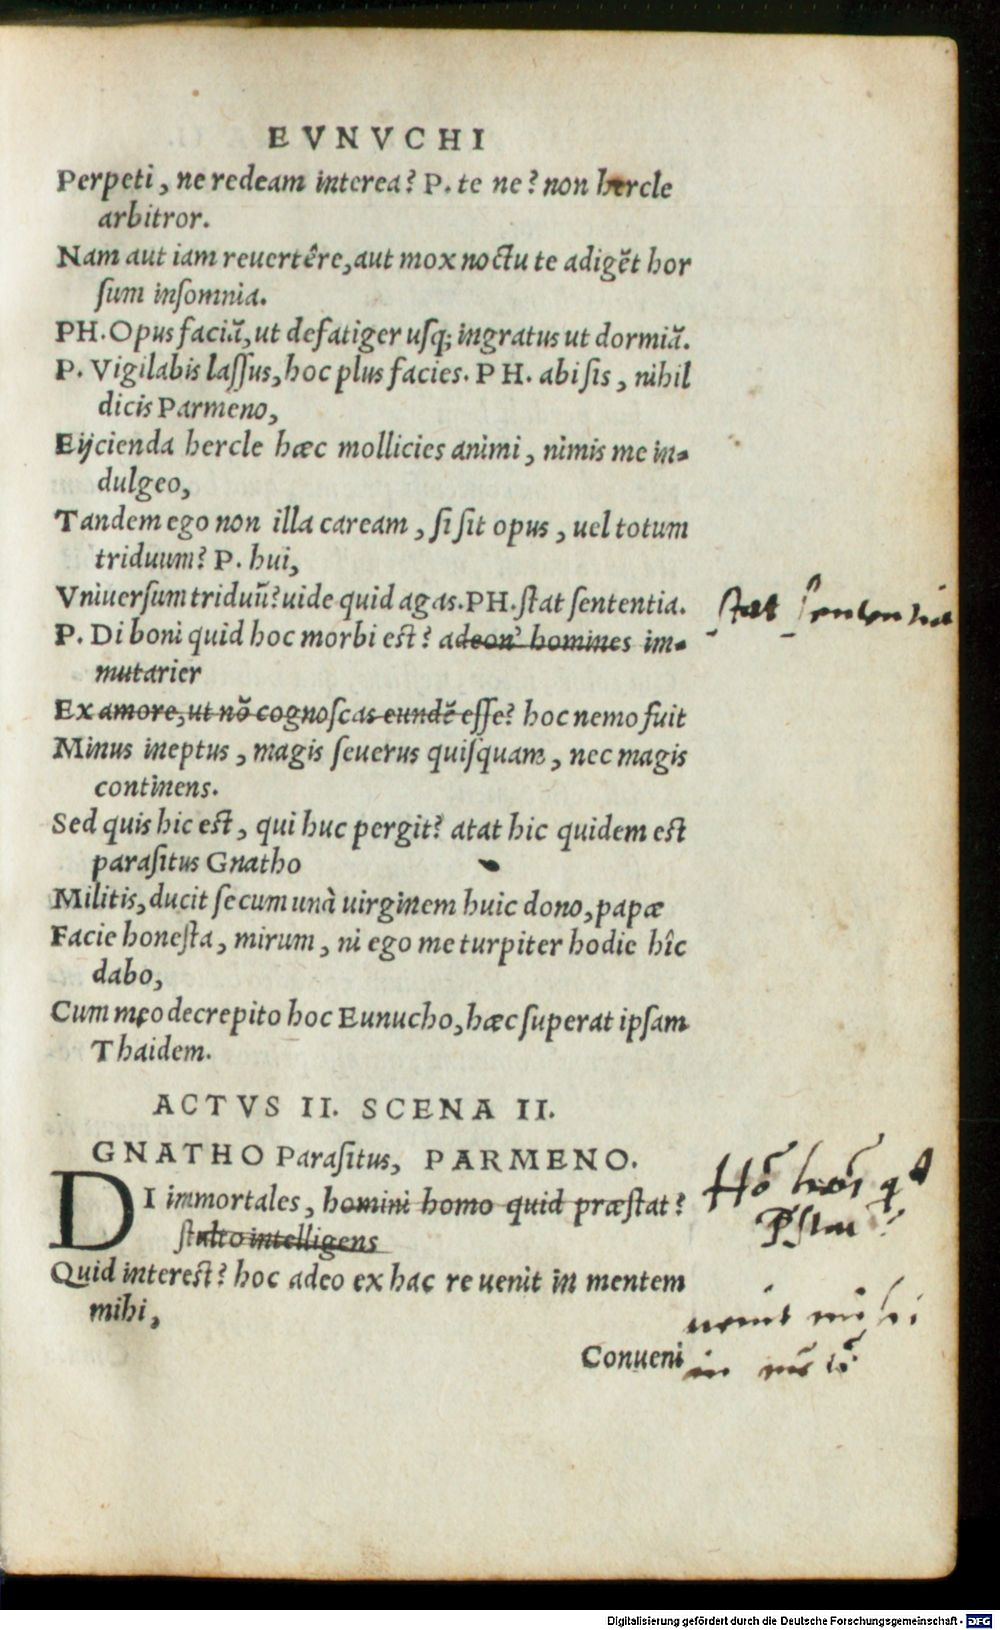 EVNVCHI
Perpeti, ne redeam interea? P. te ne? non hercle
arbitror.
Nam aut iam reuertêre, aut mox noctu te adigẽt hor
ſum inſomnia.
PH. Opus faciã, ut defatiger uſq; ingratus ut dormiã.
P. Vigilabis laſſus, hoc plus facies. PH. abi ſis, nihil
dicis Parmeno,
Eijcienda hercle hæc mollicies animi, nimis me in-
dulgeo,
Tandem ego non illa caream, ſi ſit opus, uel totum
triduum? P. hui,
Vniuerſum triduũ? uide quid agas. PH. ſtat ſententia.
ſtat ſententia
P. Di boni quid hoc morbi eſt? adeon' homines im-
mutarier
Ex amore, ut nõ cognoſcas eundẽ eſſe? hoc nemo fuit
Minus ineptus, magis ſeuerus quiſquam, nec magis
continens.
Sed quis hic eſt, qui huc pergit? atat hic quidem eſt
paraſitus Gnatho
Militis, ducit ſecum unà uirginem huic dono, papæ
Facie honeſta, mirum, ni ego me turpiter hodie hîc
dabo,
Cum meo decrepito hoc Eunucho, hæc ſuperat ipſam
Thaidem.
ACTVS II. SCENA II.
GNATHO Paraſitus, PARMENO.
DI immortales, homini homo quid præſtat?
ſtulto intelligens
Quid intereſt? hoc adeo ex hac re uenit in mentem
mihi,
uenit mihi
Conueni
Digitalisierung gefördert durch die Deutsche Forschungsgemeinschaft - DFG